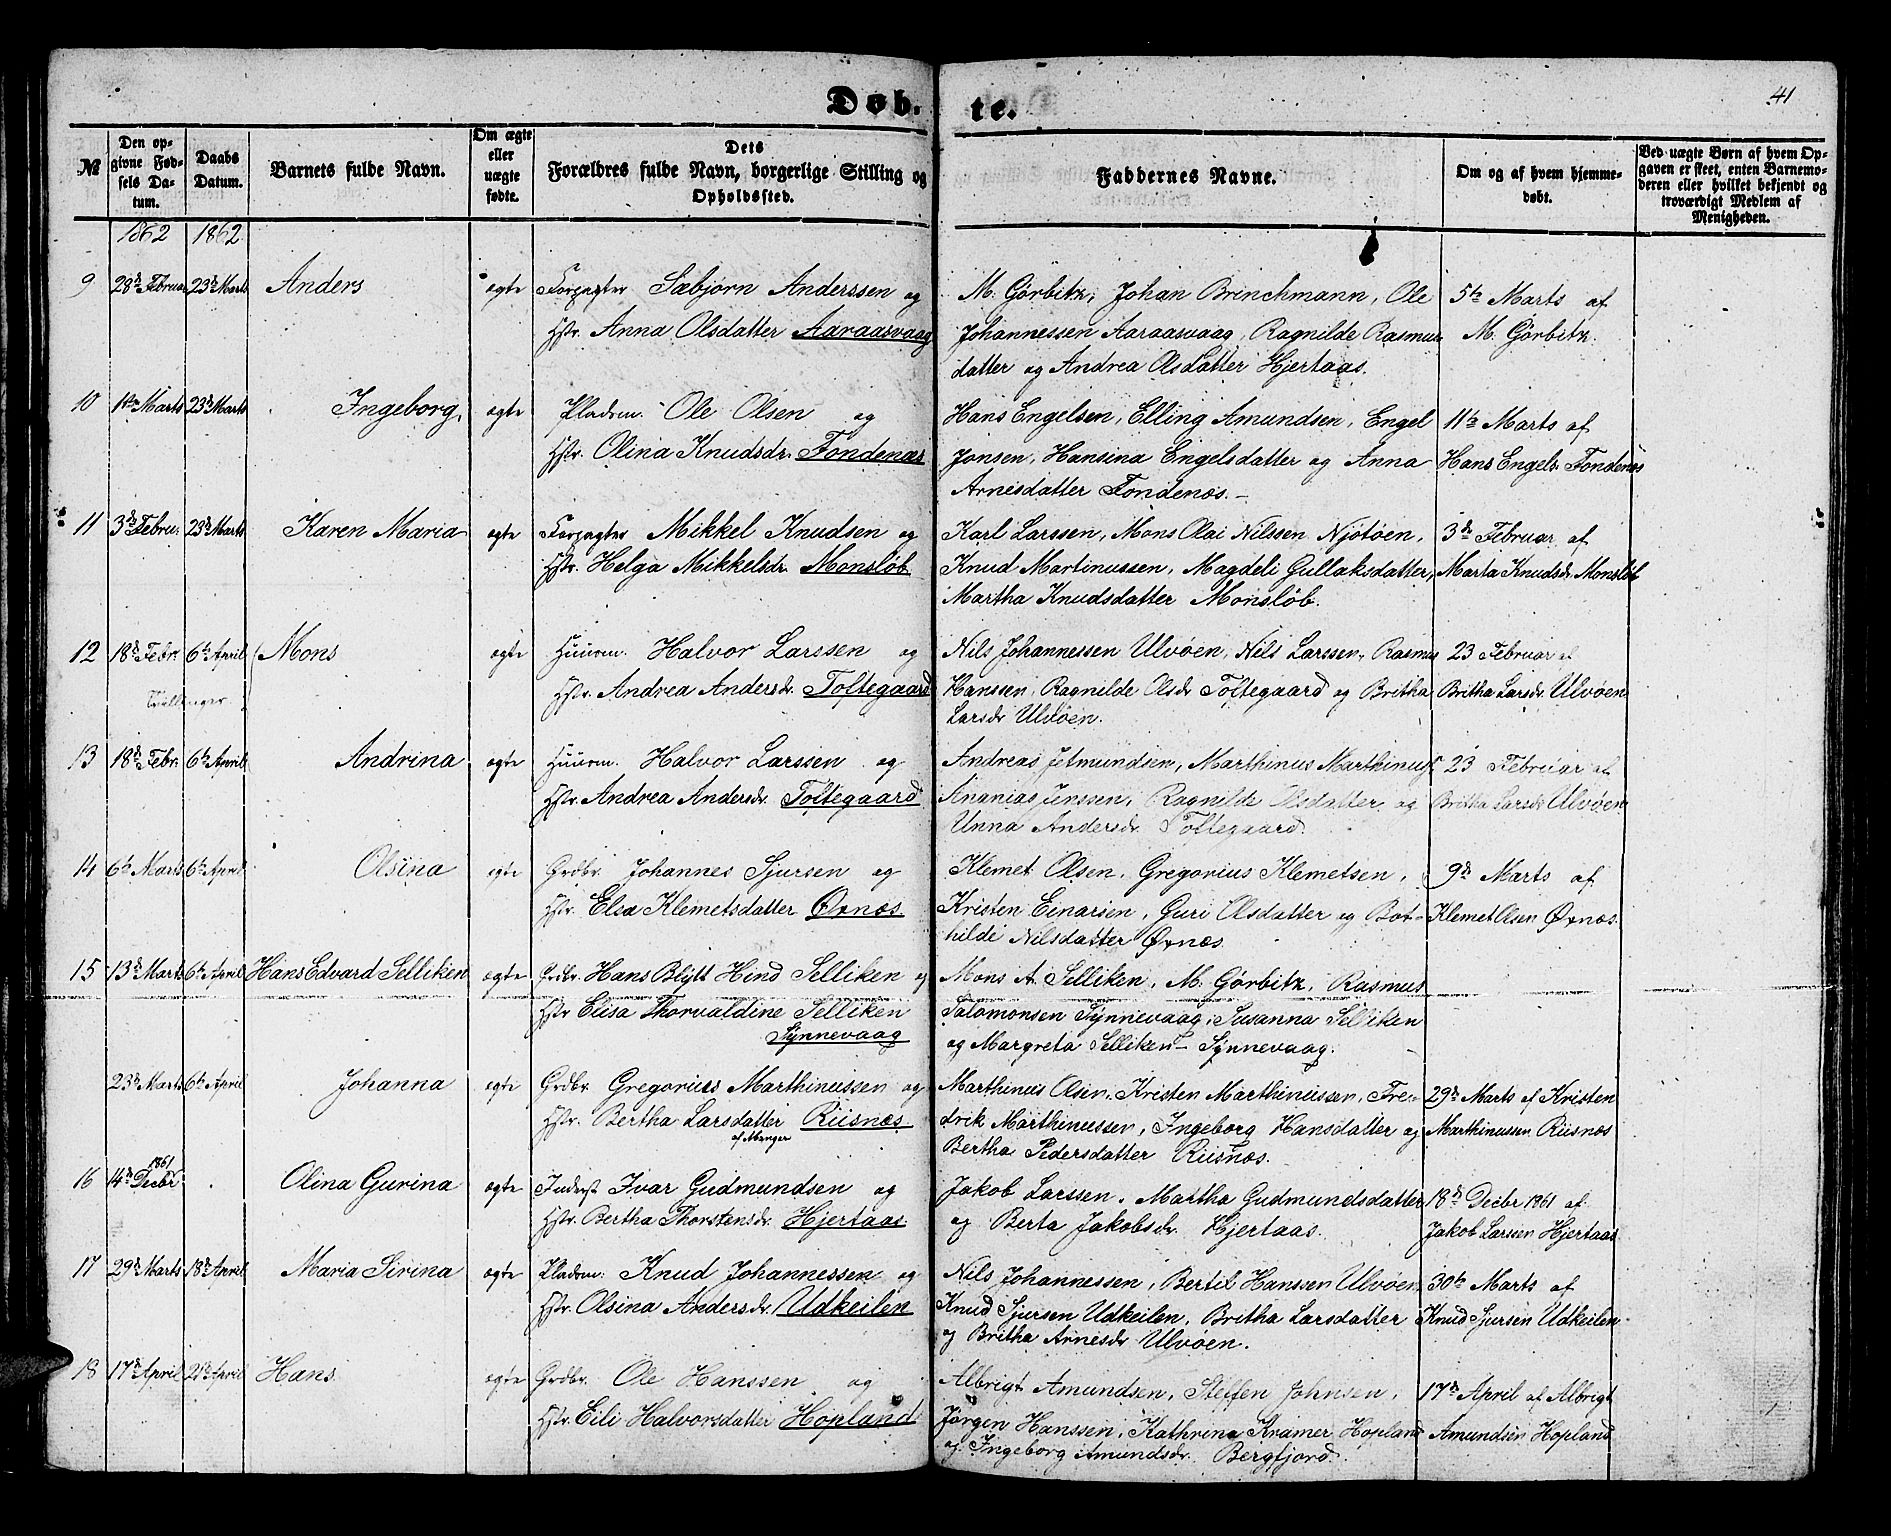 Døb. te.
41
№
Den opgivne Fødselsdatum.
Daabs Datum.
Barnets fulde Navn.
Om ægte eller uægte fødte.
Dets Forældres fulde Navn, borgerlige Stilling og Opholdssted.
Faddernes Navne.
Om og af hvem hjemmedøbt.
Ved uægte Børn af hvem Opgaven er skeet, enten Barnemoderen eller hvilket bekjendt og troværdigt Medlem af Menigheden.
1862 1862
9 28de Februar 23de Marts Anders ægte Forpagter Sæbjørn Anderssen og M. Görbitz, Johan Brinchmann, Ole 5te Marts af
Hstr. Anna Olsdatter Aaraasvaag Johannessen Aaraasvaag, Ragnilde Rasmus M. Görbitz.
datter og Andrea Olsdatter Hjertaas.
10 1ste Marts 23de Marts Ingeborg, ægte Pladsm. Ole Olsen og Hans Engelsen, Elling Amundsen, Engel 11te Marts af
Hstr. Olina Knudsdr. Fondenæs Jonsen, Hansina Engelsdatter og Anna Hans Engels. Fondenæs
Arnesdatter Fondenæs. –
11 3de Febru: 23de Marts Karen Maria ægte Forpagter Mikkel Knudsen og Karl Larssen, Mons Olai Nilssen Njøtøen, 3de Februar af
Hstr. Helga Mikkelsdr. Monsløb Knud Martinussen, Magdeli Gullaksdatter, Marta Knudsdr Monsløb
Martha Knudsdatter Monsløb.
12 18de Febr. 6te April Mons ægte Huusm. Halvor Larssen og Nils Johannessen Ulvøen, Nils Larssen, Rasmus 23 Februar af
Tvillinger Hstr. Andrea Andersdr. Toftegaard Hanssen, Ragnilde Olsdr Toftegaard og Britha Britha Larsdr. Ulvøen
Larsdr Ulvøen.
13 18de Febr. 6te April Andrina ægte Huusm. Halvor Larssen og Andreas Jetmundsen, Marthinus Marthinuss. 23 Februar af
Hstr. Andrea Andersdr. Toftegaard Ananias Jenssen, Ragnilde Olsdatter og Britha Larsdr Ulvøen
Unna Andersdr. Toftegaard.
14 6te Marts 6te April Olsina ægte Grdbr. Johannes Sjursen og Klemet Olsen, Gregorius Klemetsen, 9de Marts af
Hstr. Elsa Klemetsdatter Øvnæs Kristen Einarsen, Guri Olsdatter og Bot- Klemet Olsen Øvnæs.
hilde Nilsdatter Øvnæs.
15 13de Marts 6te April Hans Edvard Selliken ægte Grdbr. Hans Blytt Hind Selliken og Mons A. Selliken, M. Görbitz, Rasmus
Hstr Elisa Thorvaldine Selliken Salomonsen Synnevaag, Susanna Selliken
Synnevaag og Margreta Selliken – Synnevaag.
23de Marts 6te April Johanna ægte Grdbr. Gregorius Marthinussen og Marthinus Olsen, Kristen Marthinussen, Fre- 29de Marts af Kristen
Hstr. Bertha Larsdatter Riisnæs drik Marthinussen, Ingeborg Hansdatter og Marthinussen Riisnæs
Bertha Pedersdatter Riisnæs.
1861
16 14de Decbr Olina Gurina ægte Inderst Ivar Gudmundsen og Jakob Larssen, Martha Gudmundsdatter 18de Decbr 1861 af
Hstr. Bertha Thorstensdr. Hjertaas og Berta Jakobsdr. Hjertaas. Jakob Larssen Hjertaas
17 29de Marts 18de April Maria Sirina ægte Pladsm. Knud Johannessen og Nils Johannessen, Bertil Hanssen Ulvøen, 30te Marts af
Hstr. Olsina Andersdr. Udkeilen Knud Sjursen Udkeilen, Britha Larsdatter Knud Sjursen Udkeilen
og Britha Arnesdr Ulvøen.
18 17de April 21de April Hans ægte Grdbr. Ole Hanssen og Albrigt Amundsen, Steffen Johnsen, 17de April af Albrigt
Hstr. Eili Halvorsdatter Hopland Jørgen Hanssen, Kathrina Kramer Hopland Amundsen Hopland
og Ingeborg Amundsdr. Bergfjord.